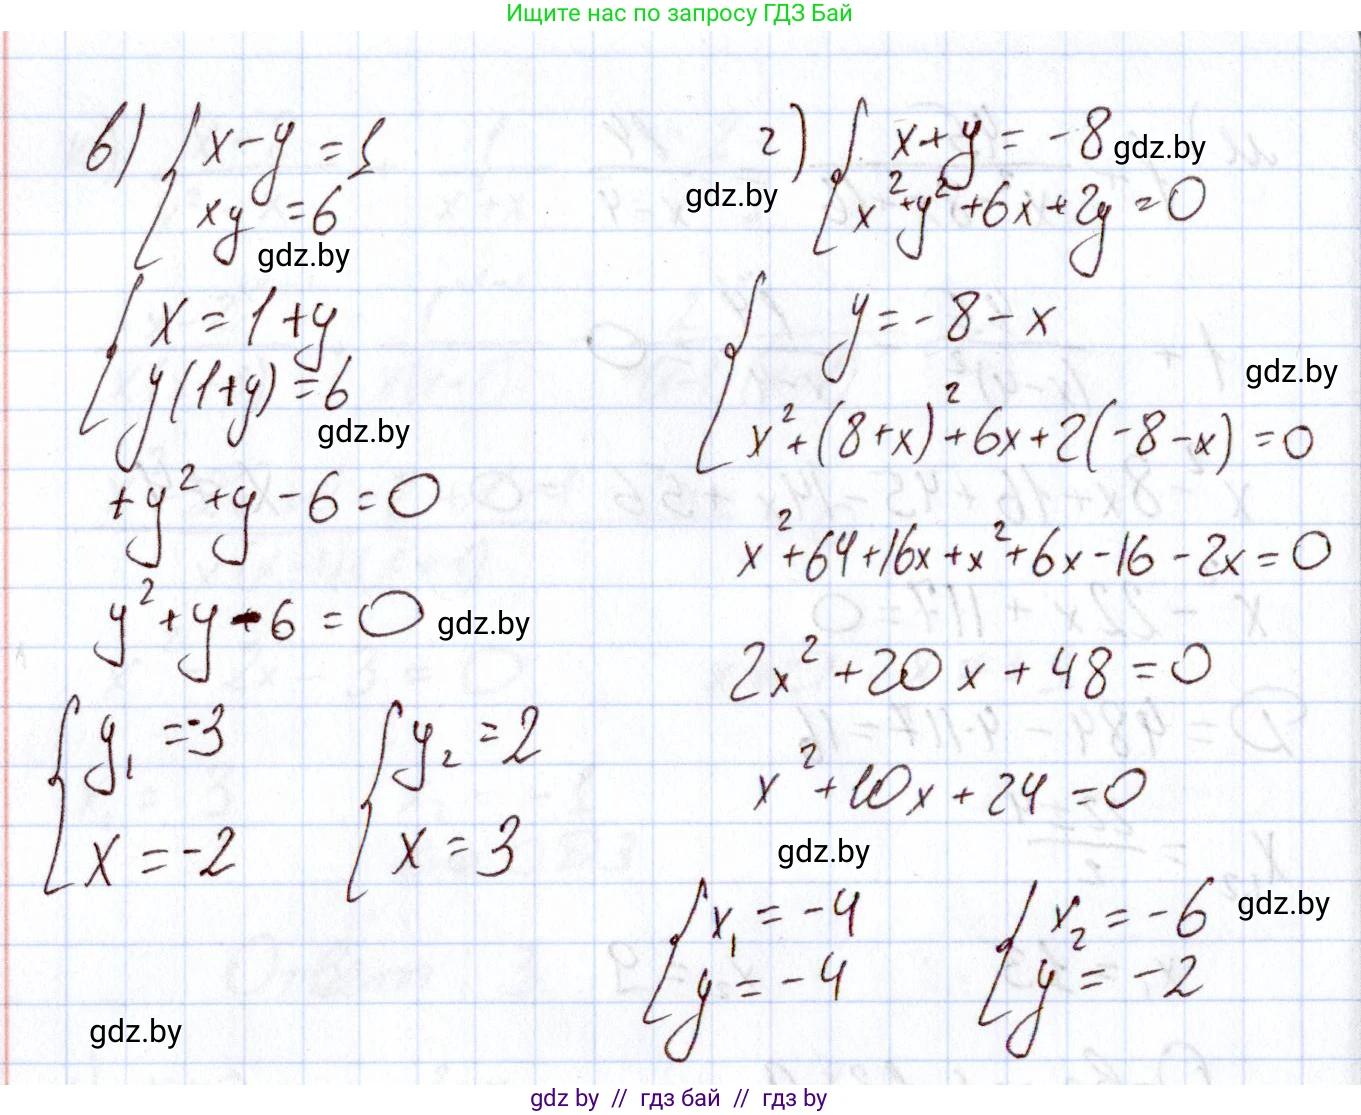 Ищите нас по запросу ГДЗ Бай
в) { x - y = 1
xy = 6
gdz.by
{ x = 1 + y
y(1+y) = 6
gdz.by
+y² + y - 6 = 0
y² + y - 6 = 0
gdz.by
{ y₁ = -3
x = -2
{ y₂ = 2
x = 3
gdz.by
г) { x + y = -8
gdz.by
gdz.by
x² + y² + 6x + 2y = 0
{ y = -8 - x
gdz.by
x² + (8+x)² + 6x + 2(-8-x) = 0
x² + 64 + 16x + x² + 6x - 16 - 2x = 0
2x² + 20x + 48 = 0
x² + 10x + 24 = 0
gdz.by
{ x₁ = -4
y = -4
{ x₂ = -6
y = -2
gdz.by
gdz.by // гдз бай // гдз by